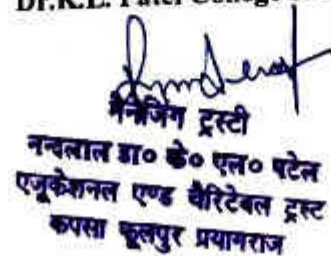 Dr.K.L. Patel College
मैनेजिंग ट्रस्टी
नन्दलाल डा० के० एल० पटेल
एजूकेशनल एण्ड चैरिटेबल ट्रस्ट
कपसा फूलपुर प्रयागराज